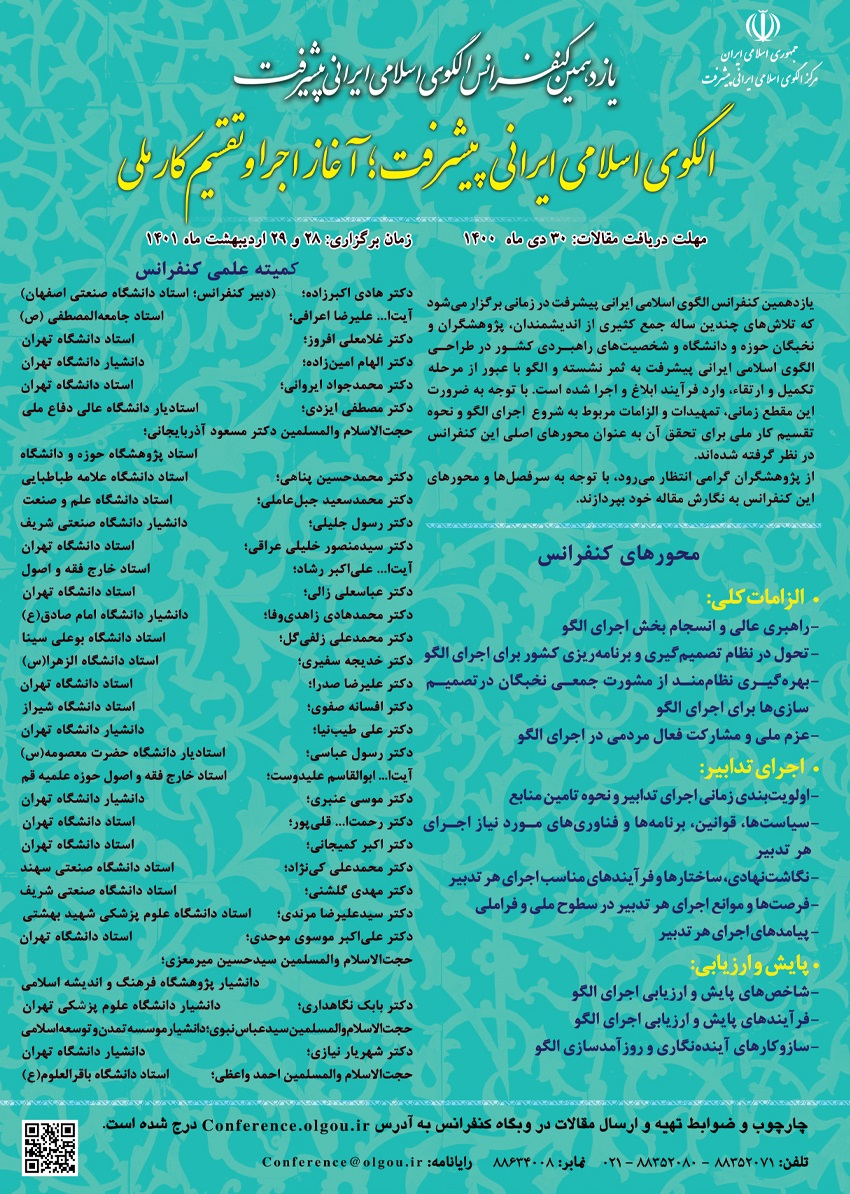 جمهوری اسلامی ایران
مرکز الگوی اسلامی ایرانی پیشرفت
یازدهمین کنفرانس الگوی اسلامی ایرانی پیشرفت
الگوی اسلامی ایرانی پیشرفت؛ آغاز اجرا و تقسیم کار ملی
مهلت دریافت مقالات: ۳۰ دی ماه ۱۴۰۰
زمان برگزاری: ۲۸ و ۲۹ اردیبهشت ماه ۱۴۰۱
یازدهمین کنفرانس الگوی اسلامی ایرانی پیشرفت در زمانی برگزار می‌شود
که تلاش‌های چندین ساله جمع کثیری از اندیشمندان، پژوهشگران و
نخبگان حوزه و دانشگاه و شخصیت‌های راهبردی کشور در طراحی
الگوی اسلامی ایرانی پیشرفت به ثمر نشسته و الگو با عبور از مرحله
تکمیل و ارتقاء، وارد فرآیند ابلاغ و اجرا شده است. با توجه به ضرورت
این مقطع زمانی، تمهیدات و الزامات مربوط به شروع اجرای الگو و نحوه
تقسیم کار ملی برای تحقق آن به عنوان محورهای اصلی این کنفرانس
در نظر گرفته شده‌اند.
از پژوهشگران گرامی انتظار می‌رود، با توجه به سرفصل‌ها و محورهای
این کنفرانس به نگارش مقاله خود بپردازند.
محورهای کنفرانس
• الزامات کلی:
-راهبری عالی و انسجام بخش اجرای الگو
-تحول در نظام تصمیم‌گیری و برنامه‌ریزی کشور برای اجرای الگو
-بهره‌گیری نظام‌مند از مشورت جمعی نخبگان در تصمیم
سازی‌ها برای اجرای الگو
-عزم ملی و مشارکت فعال مردمی در اجرای الگو
• اجرای تدابیر:
-اولویت‌بندی زمانی اجرای تدابیر و نحوه تامین منابع
-سیاست‌ها، قوانین، برنامه‌ها و فناوری‌های مورد نیاز اجرای
هر تدبیر
-نگاشت‌نهادی، ساختارها و فرآیندهای مناسب اجرای هر تدبیر
-فرصت‌ها و موانع اجرای هر تدبیر در سطوح ملی و فراملی
-پیامدهای اجرای هر تدبیر
• پایش و ارزیابی:
-شاخص‌های پایش و ارزیابی اجرای الگو
-فرآیندهای پایش و ارزیابی اجرای الگو
-سازوکارهای آینده‌نگاری و روزآمدسازی الگو
کمیته علمی کنفرانس
دکتر هادی اکبرزاده؛ (دبیر کنفرانس؛ استاد دانشگاه صنعتی اصفهان)
آیت‌ا... علیرضا اعرافی؛ استاد جامعه‌المصطفی (ص)
دکتر غلامعلی افروز؛ استاد دانشگاه تهران
دکتر الهام امین‌زاده؛ دانشیار دانشگاه تهران
دکتر محمدجواد ایروانی؛ استاد دانشگاه تهران
دکتر مصطفی ایزدی؛ استادیار دانشگاه عالی دفاع ملی
حجت‌الاسلام والمسلمین دکتر مسعود آذربایجانی؛
استاد پژوهشگاه حوزه و دانشگاه
دکتر محمدحسین پناهی؛ استاد دانشگاه علامه طباطبایی
دکتر محمدسعید جبل‌عاملی؛ استاد دانشگاه علم و صنعت
دکتر رسول جلیلی؛ دانشیار دانشگاه صنعتی شریف
دکتر سیدمنصور خلیلی عراقی؛ استاد دانشگاه تهران
آیت‌ا... علی‌اکبر رشاد؛ استاد خارج فقه و اصول
دکتر عباسعلی زالی؛ استاد دانشگاه تهران
دکتر محمدهادی زاهدی‌وفا؛ دانشیار دانشگاه امام صادق(ع)
دکتر محمدعلی زلفی‌گل؛ استاد دانشگاه بوعلی سینا
دکتر خدیجه سفیری؛ استاد دانشگاه الزهرا(س)
دکتر علیرضا صدرا؛ استاد دانشگاه تهران
دکتر افسانه صفوی؛ استاد دانشگاه شیراز
دکتر علی طیب‌نیا؛ دانشیار دانشگاه تهران
دکتر رسول عباسی؛ استادیار دانشگاه حضرت معصومه(س)
آیت‌ا... ابوالقاسم علیدوست؛ استاد خارج فقه و اصول حوزه علمیه قم
دکتر موسی عنبری؛ دانشیار دانشگاه تهران
دکتر رحمت‌ا... قلی‌پور؛ استاد دانشگاه تهران
دکتر اکبر کمیجانی؛ استاد دانشگاه تهران
دکتر محمدعلی کی‌نژاد؛ استاد دانشگاه صنعتی سهند
دکتر مهدی گلشنی؛ استاد دانشگاه صنعتی شریف
دکتر سیدعلیرضا مرندی؛ استاد دانشگاه علوم پزشکی شهید بهشتی
دکتر علی‌اکبر موسوی موحدی؛ استاد دانشگاه تهران
حجت‌الاسلام والمسلمین سیدحسین میرمعزی؛
دانشیار پژوهشگاه فرهنگ و اندیشه اسلامی
دکتر بابک نگاهداری؛ دانشیار دانشگاه علوم پزشکی تهران
حجت‌الاسلام والمسلمین سید عباس نبوی؛ دانشیار موسسه تمدن و توسعه اسلامی
دکتر شهریار نیازی؛ دانشیار دانشگاه تهران
حجت‌الاسلام والمسلمین احمد واعظی؛ استاد دانشگاه باقرالعلوم(ع)
چارچوب و ضوابط تهیه و ارسال مقالات در وبگاه کنفرانس به آدرس Conference.olgou.ir درج شده است.
تلفن: ۸۸۳۵۲۰۷۱ - ۸۸۳۵۲۰۸۰ - ۰۲۱ نمابر: ۸۸۶۳۴۰۰۸ رایانامه: Conference@olgou.ir